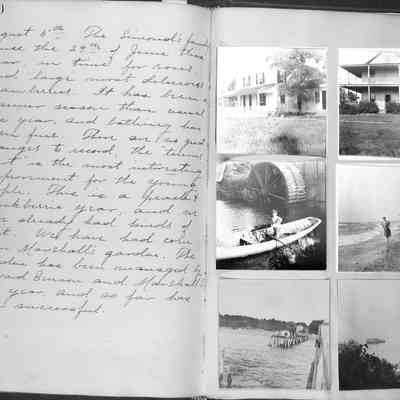 )
gust 6th The Simonds' fami
the 29th of June this
ar, in time for roses
nd large most delicious
rawberries. It has been a
summer season than usual
year, and bathing has
en fine. There are no great
anges to record, the tennis
t" is the most interesting
provement for the young
ople. This is a great
ckberry year, and we
already had
t. We have had
Marshall's garden. The
den has been managed by
and Marshall
year, and so far has
successful.